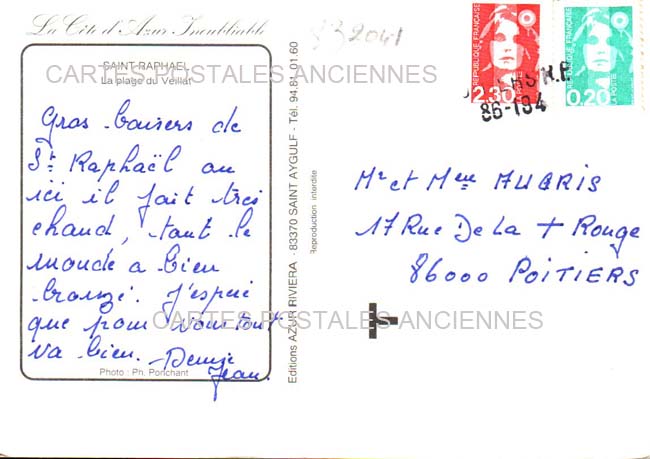 La Côte d'Azur Inoubliable
SAINT-RAPHAEL
La plage du Veillat
CARTES POSTALES ANCIENNES
Gros baisers de
St Raphaël ou
ici il fait tres
chaud, tout le
monde a bien
bronzé. J'espere
que pour vous tout
va bien. - Denise
Jean.
Photo : Ph. Ponchant
Editions AZUR RIVIERA - 83370 SAINT AYGULF - Tél. 94.81.01.60
Reproduction interdite
832041
REPUBLIQUE FRANÇAISE
2,30
LA POSTE
REPUBLIQUE FRANÇAISE
0,20
LA POSTE
R.P.
86-194
Mr et Mme AUBRIS
17 Rue De La + Rouge
86000 POITIERS
CARTES POSTALES ANCIENNES